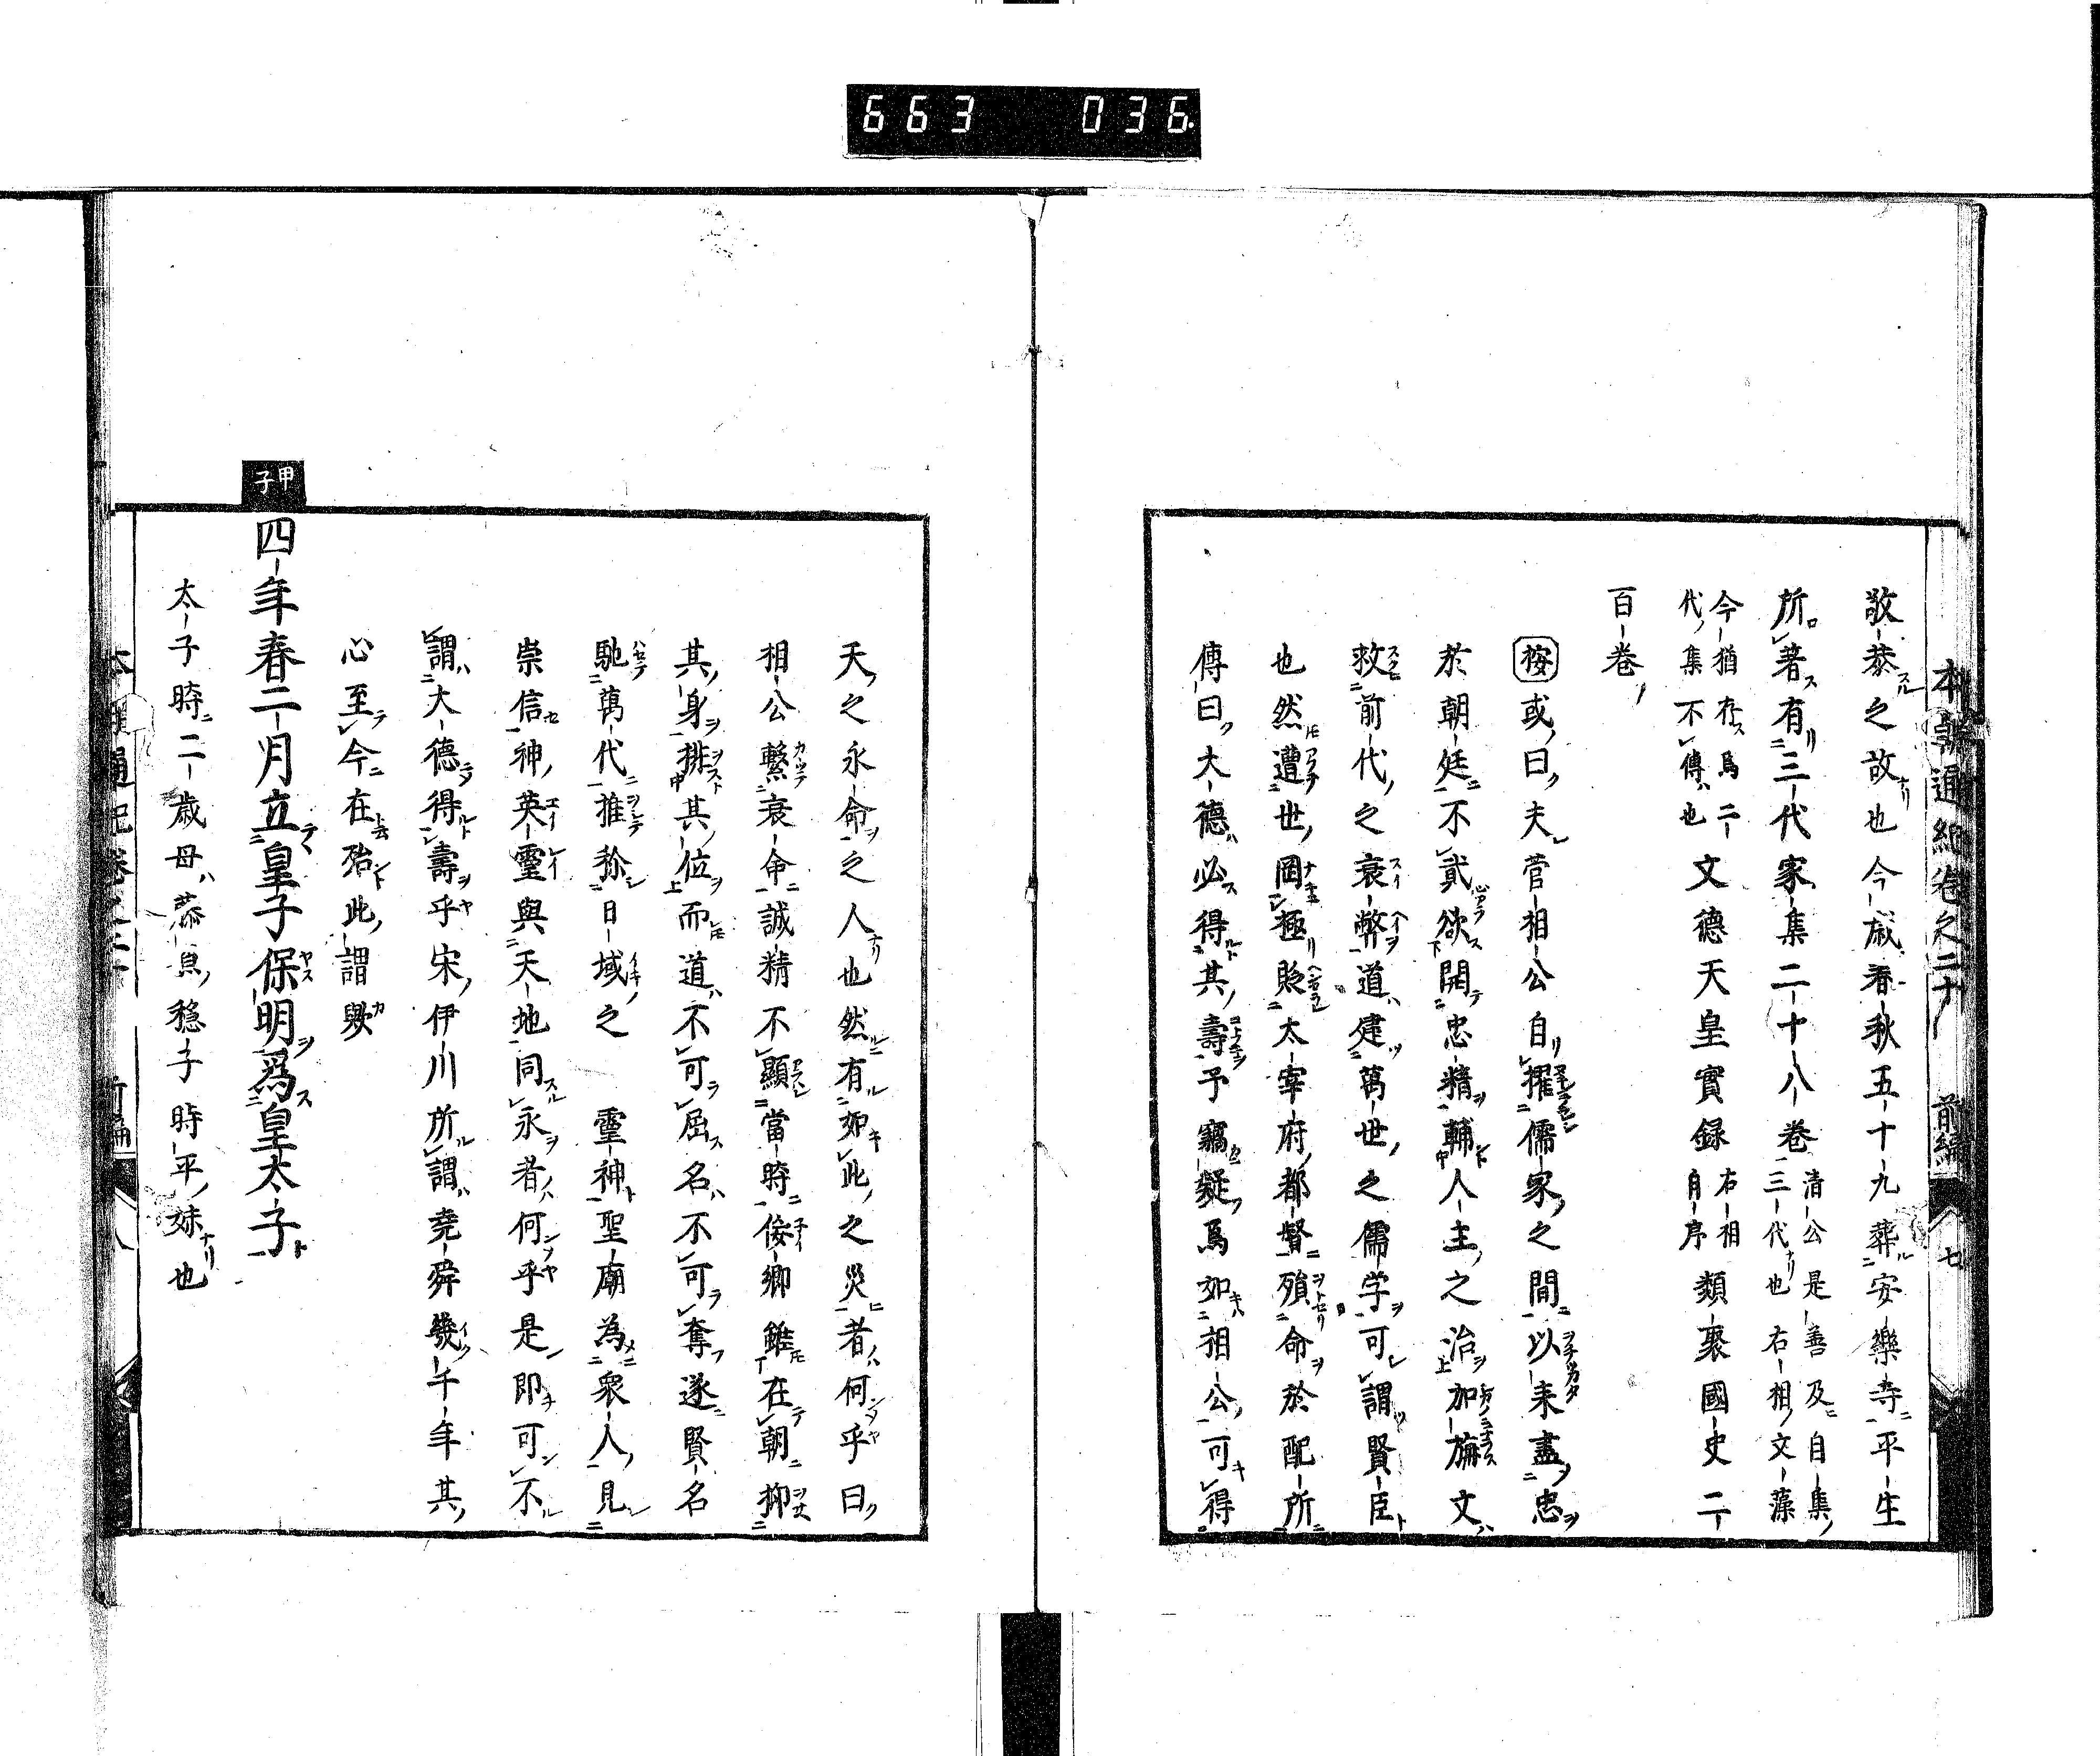 663 036
本朝通紀卷之二十 前編 七
敬恭之故也今歲春秋五十九葬安樂寺平生
所著有三代家集二十八卷清公是善及自集
三代也右相文藻
今猶存爲二
代集不傳也文德天皇實録右相
自序類聚國史二
百卷
按或曰夫菅相公自擢儒家之間以来盡忠
於朝廷不貳欲開忠精輔人主之治加旃文
救前代之衰弊道建萬世之儒学可謂賢臣
也然遭世罔極貶太宰府都督殞命於配所
傳曰大德必得其壽予竊疑焉如相公可得
天之永命之人也然有如此之災者何乎曰
相公繋衰命誠精不顯當時侫卿雖在朝抑
其身排其位而道不可屈名不可奪遂賢名
馳萬代推称日域之 靈神聖廟為衆人見
崇信神英靈與天地同永者何乎是即可不
謂大德得壽乎宋伊川所謂堯舜幾千年其
心至今在殆此謂歟
甲子
四年春二月立皇子保明爲皇太子
太子時二歲母恭皇穏子時平妹也